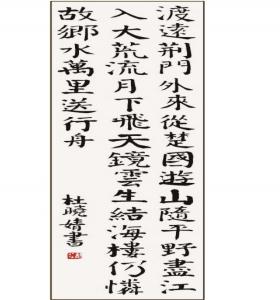 渡遠荊門外來從楚國遊山隨平野盡江
入大荒流月下飛天鏡雲生結海樓仍憐
故鄉水萬里送行舟
杜曉婧書